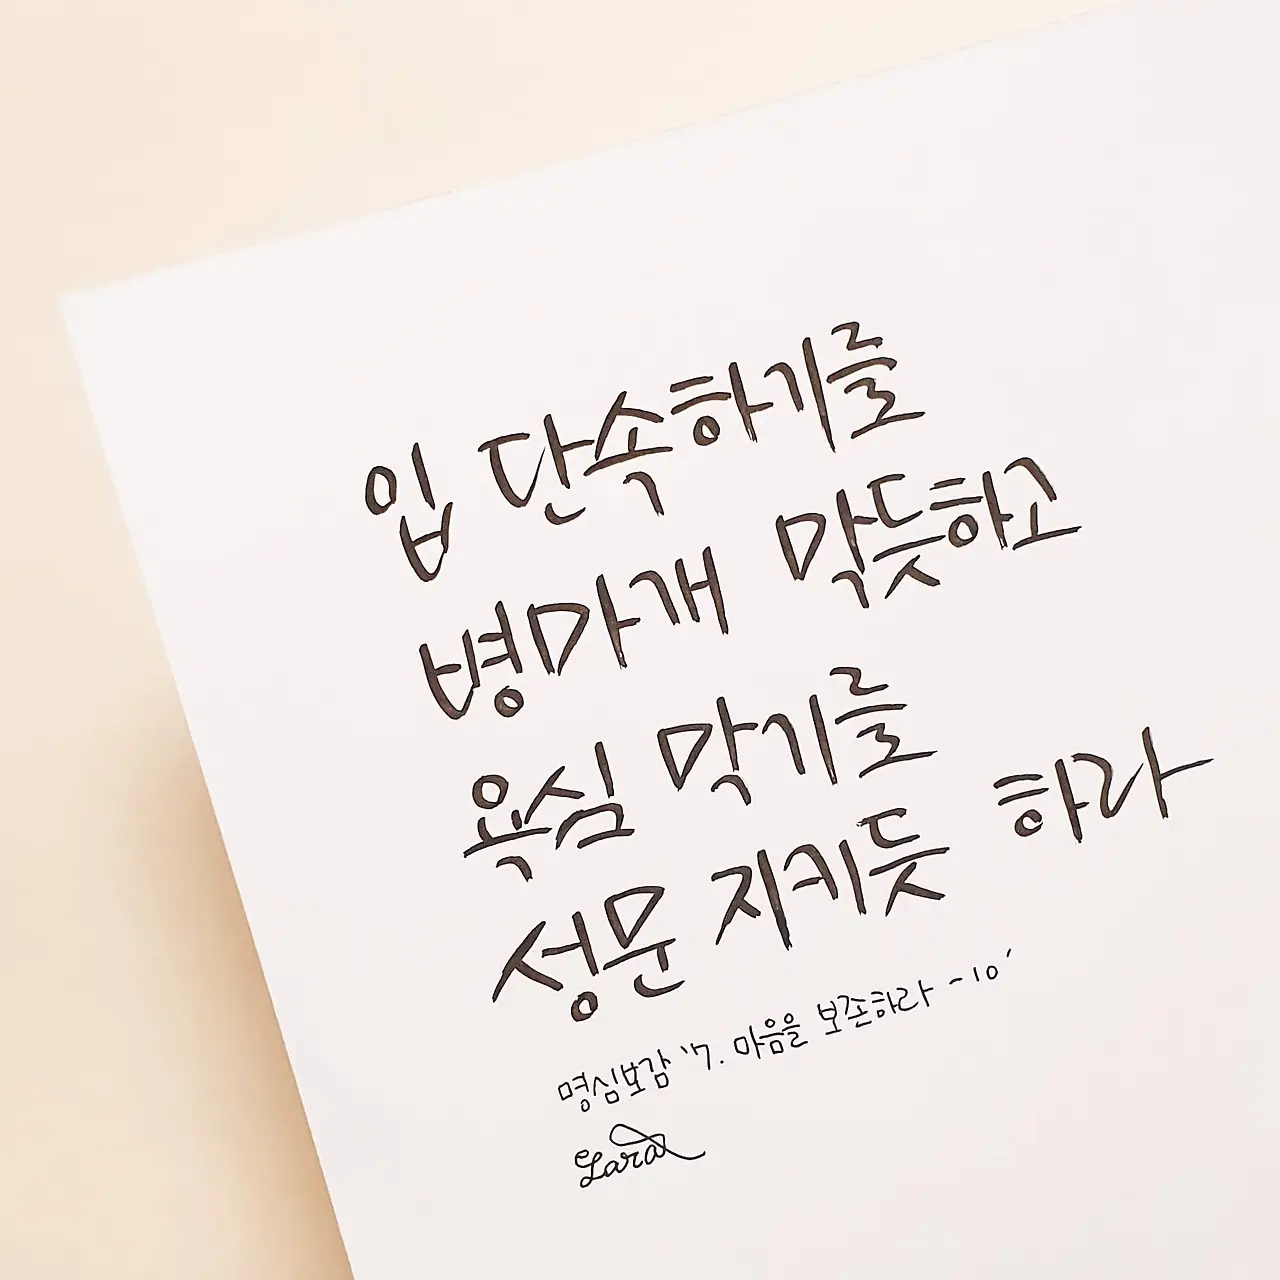 입 단속하기를
병마개 막듯하고
욕심 막기를
성문 지키듯 하라
명심보감 '7. 마음을 보존하라 -10'
Lara